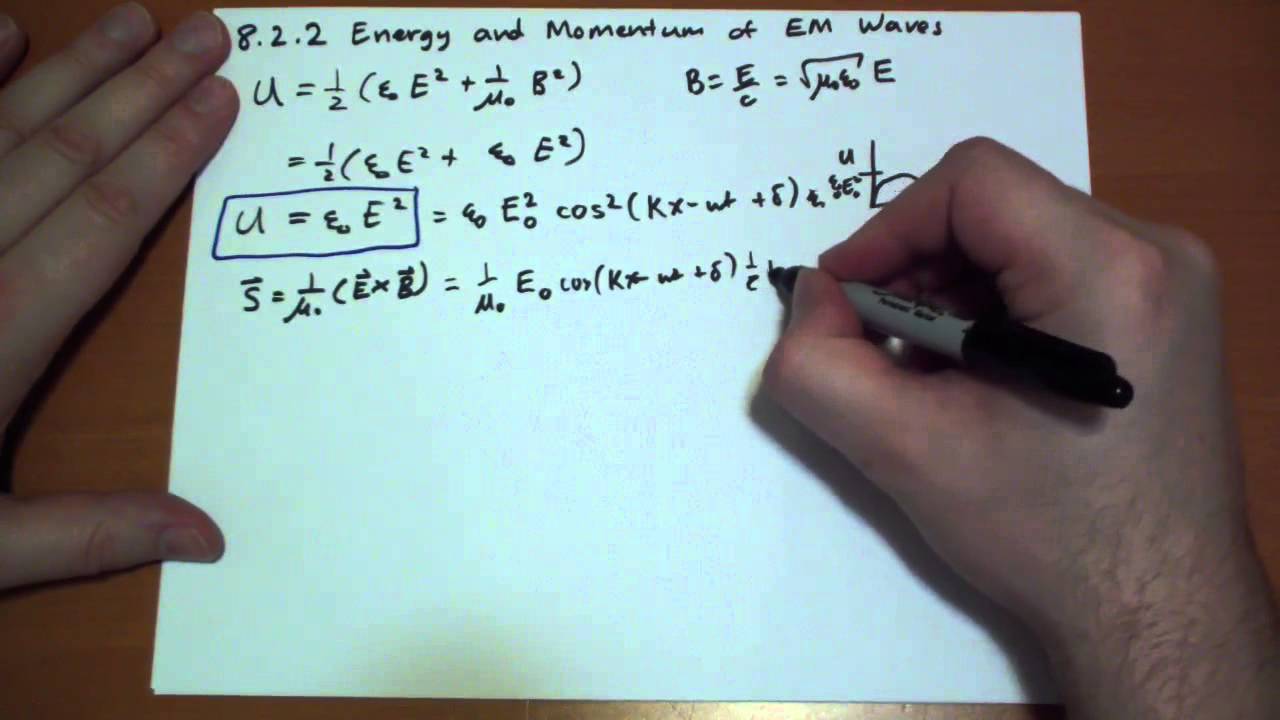 8.2.2 Energy and Momentum of EM Waves
U = 1/2 (ε₀ E² + 1/μ₀ B²) B = E/c = √(μ₀ε₀) E
= 1/2 (ε₀ E² + ε₀ E²)
U
ε₀E₀²
U = ε₀ E² = ε₀ E₀² cos² (Kx - ωt + δ)
S⃗ = 1/μ₀ (E⃗ × B⃗) = 1/μ₀ E₀ cos(Kx - ωt + δ) 1/c